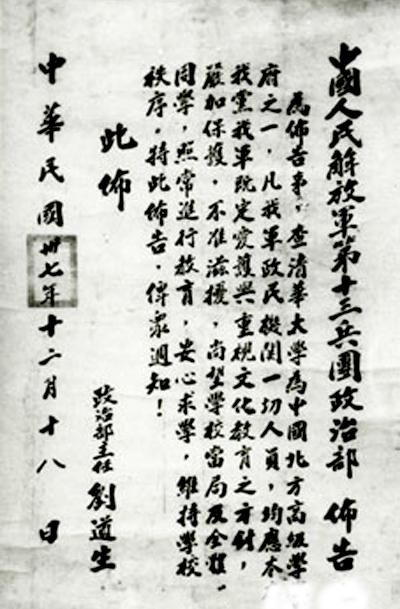 中國人民解放軍第十三兵團政治部佈告
為佈告事,查清華大學為中國北方高級學
府之一,凡我軍政民機関一切人員,均應本
我黨我軍既定愛護與重視文化教育之方針,
嚴加保護,不准滋擾,尚望學校當局及全體
同學,照常進行教育,安心求學,維持學校
秩序。特此佈告,俾衆週知!
此佈
政治部主任 劉道生
中華民國卅七年十二月十八日